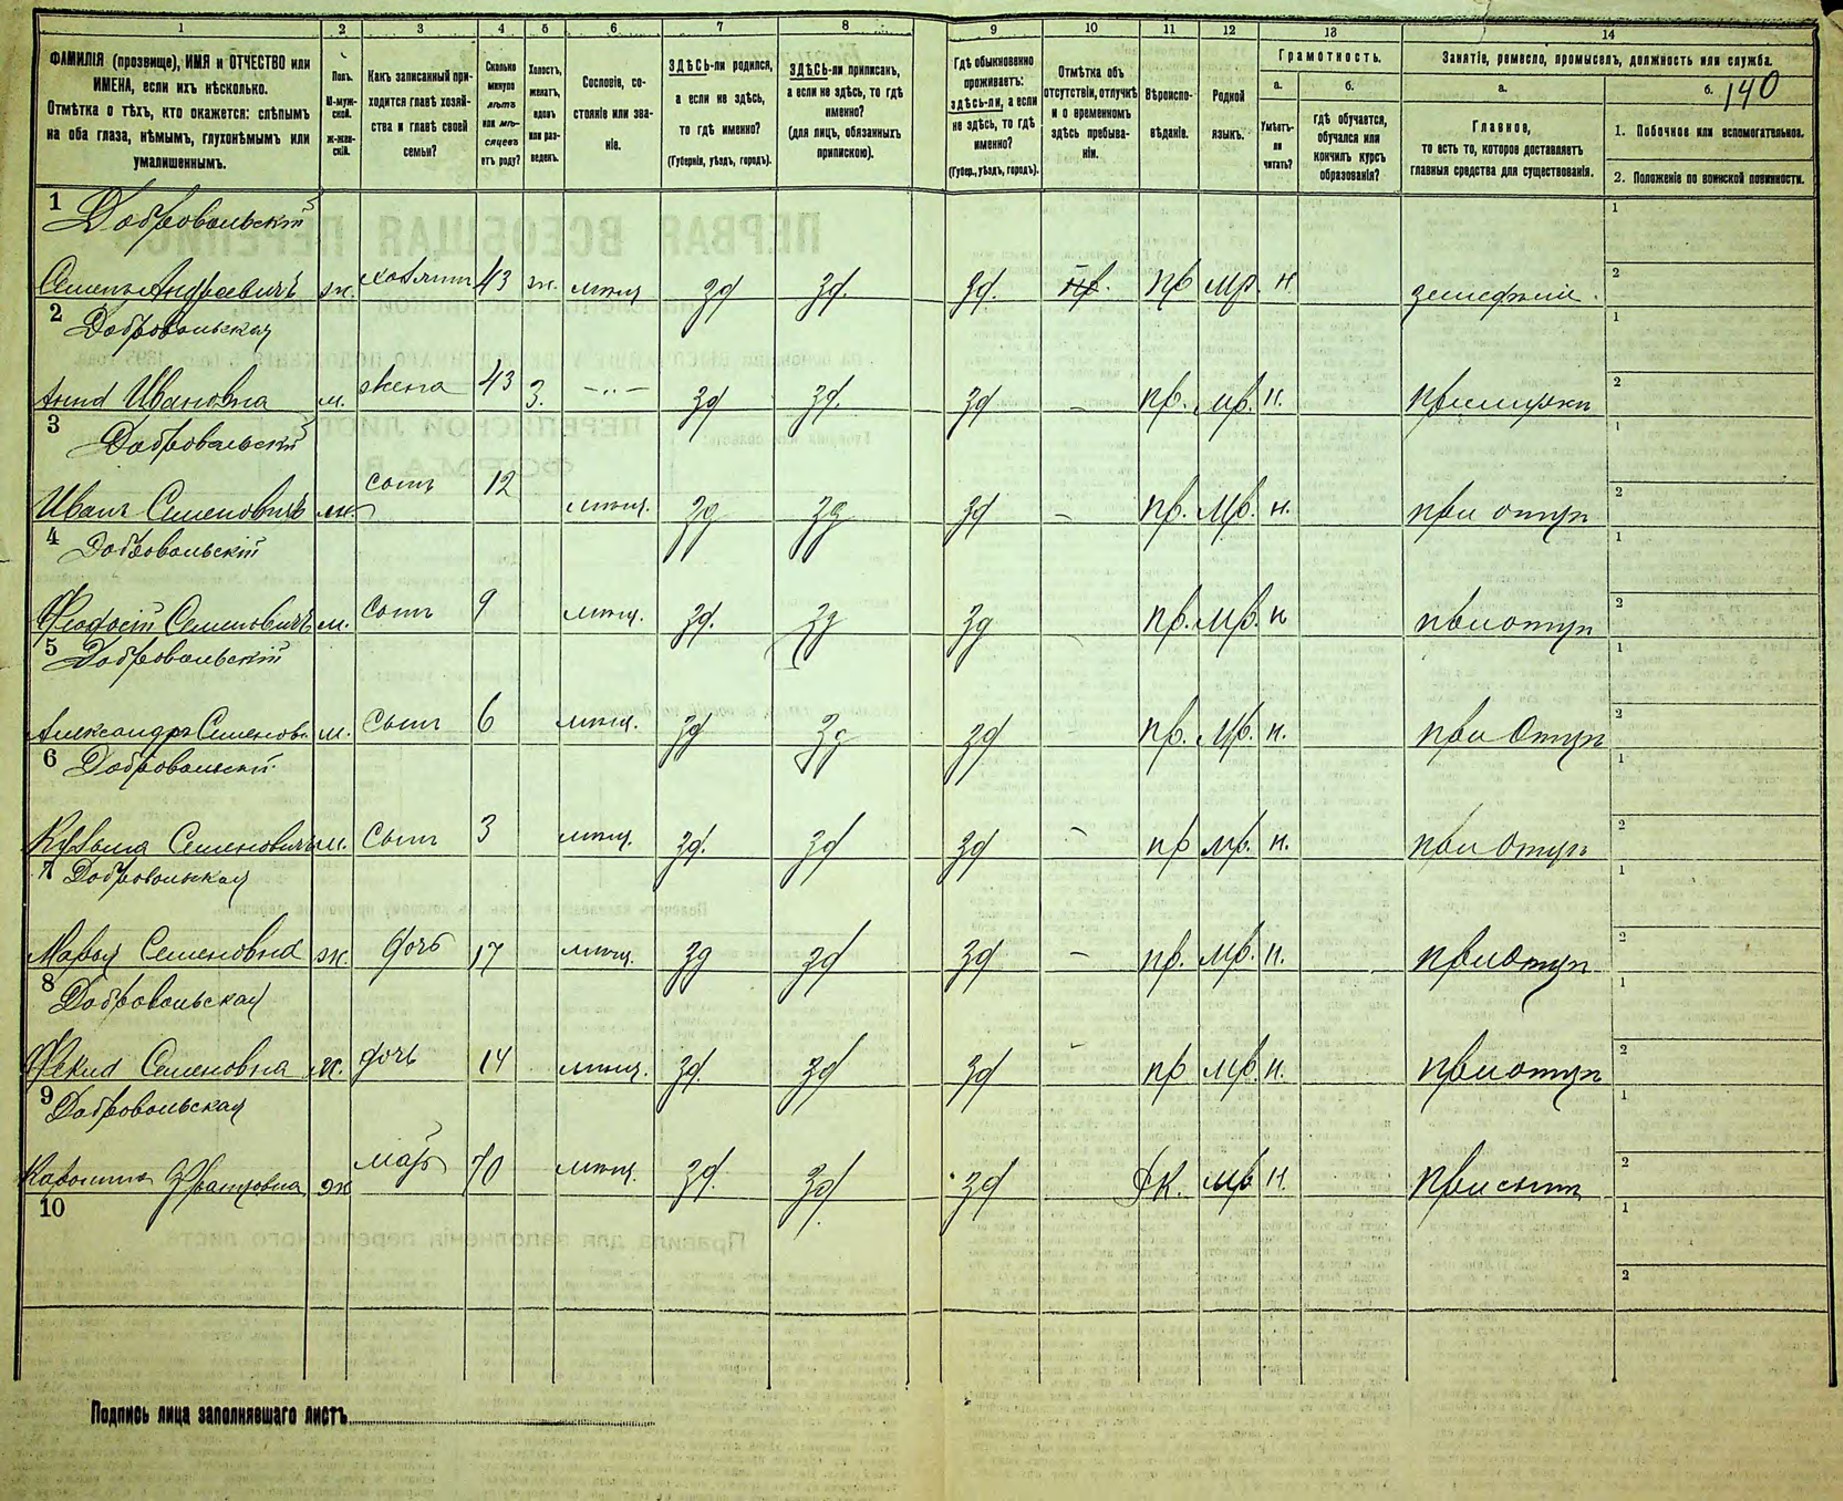 1 2 3 4 5 6 7 8 9 10 11 12 13 14
ФАМИЛІЯ (прозвище), ИМЯ и ОТЧЕСТВО или
ИМЕНА, если ихъ нѣсколько.
Отмѣтка о тѣхъ, кто окажется: слѣпымъ
на оба глаза, нѣмымъ, глухонѣмымъ или
умалишеннымъ.
Полъ.
М-муж-
ской.
Ж-жен-
скій.
Какъ записанный при-
ходится главѣ хозяй-
ства и главѣ своей
семьи?
Сколько
минуло
лѣтъ
или мѣ-
сяцевъ
отъ роду?
Холостъ,
женатъ,
вдовъ
или раз-
веденъ.
Сословіе, со-
стояніе или зва-
ніе.
ЗДѢСЬ-ли родился,
а если не здѣсь,
то гдѣ именно?
(Губернія, уѣздъ, городъ).
ЗДѢСЬ-ли приписанъ,
а если не здѣсь, то гдѣ
именно?
(для лицъ, обязанныхъ
припискою).
Гдѣ обыкновенно
проживаетъ:
здѣсь-ли, а если
не здѣсь, то гдѣ
именно?
(Губер., уѣздъ, городъ).
Отмѣтка объ
отсутствіи, отлучкѣ
и о временномъ
здѣсь пребыва-
ніи.
Вѣроиспо-
вѣданіе.
Родной
языкъ.
Грамотность.
а.
Умѣетъ-
ли
читать?
б.
гдѣ обучается,
обучался или
кончилъ курсъ
образованія?
Занятіе, ремесло, промыселъ, должность или служба.
а.
Главное,
то есть то, которое доставляетъ
главныя средства для существованія.
б. 140
1. Побочное или вспомогательное.
2. Положеніе по воинской повинности.
1 Добровольскій 1
Семенъ Андреевичъ ж. хозяинъ 43 ж. мѣщ зд зд. зд. пр мр. н. 2
2 Добровольская 1
Анна Ивановна м. жена 43 З. —"— зд зд. зд – пр. мр. н. 2
3 Добровольскій 1
Иванъ Семеновичъ м. сынъ 12 мѣщ. зд зд зд – пр. мр. н. при отцѣ 2
4 Добровольскій 1
Феодосій Семеновичъ м. сынъ 9 мѣщ. зд. зд зд пр. мр. н при отцѣ 2
5 Добровольскій 1
Александръ Семенов. м. сынъ 6 мѣщ. зд зд зд пр. мр. н. при отцѣ 2
6 Добровольскій 1
Кузьма Семеновичъ м. Сынъ 3 мѣщ. зд. зд зд – пр мр. н. при отцѣ 2
7 Добровольская 1
Марья Семеновна ж. дочь 17 мѣщ. зд зд зд – пр. мр. н. при отцѣ 2
8 Добровольская 1
Семеновна ж. дочь 14 мѣщ. зд. зд зд пр мр. н. при отцѣ 2
9 Добровольская 1
ж мать 70 мѣщ. зд. зд зд мр н. при сынѣ 2
10 1
2
Подпись лица заполнявшаго листъ